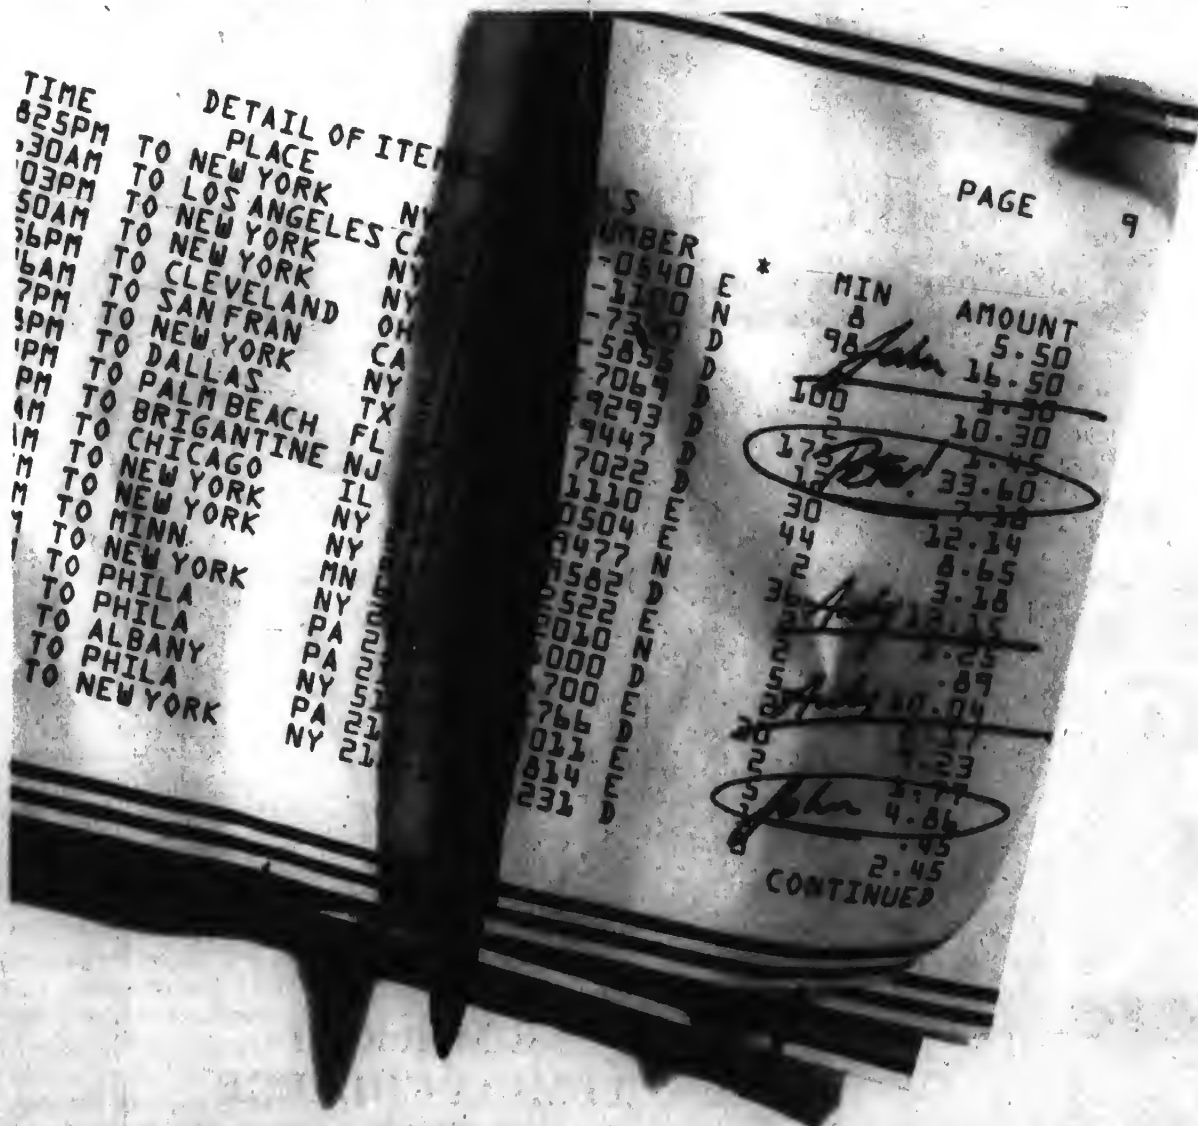 DETAIL OF ITE MS PAGE 9
TIME PLACE NUMBER * MIN AMOUNT
825PM TO NEW YORK NY -0540 E 8 5.50
30AM TO LOS ANGELES CA -1100 N 98 John 16.50
03PM TO NEW YORK NY D 1.30
50AM TO NEW YORK NY 5855 D 100 10.30
56PM TO CLEVELAND OH 7069 D 2 1.45
6AM TO SAN FRAN CA 9293 D 175 33.60
7PM TO NEW YORK NY 9447 D
PM TO DALLAS TX 7022 E 30 12.14
PM TO PALM BEACH FL 1110 E 44 8.65
PM TO BRIGANTINE NJ 0504 N 2 3.18
AM TO CHICAGO IL 9477 D 36 Andy 13.15
M TO NEW YORK NY 9582 E 1.25
M TO NEW YORK NY 522 N 2 .89
M TO MINN MN 2010 D 5 Andy 10.04
TO NEW YORK NY 000 E 2
TO PHILA PA 2 700 D 20 .23
TO PHILA PA 2 766 E 2 1.77
TO ALBANY NY 5 011 E 5 John 4.86
TO PHILA PA 21 814 .95
TO NEW YORK NY 21 231 D 8 2.45
CONTINUED